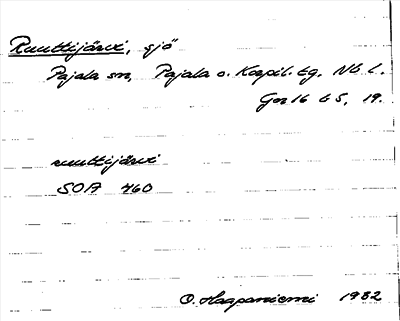 Ruuttijärvi, sjö
Pajala sn, Pajala o. Korpil. tg. Nb l.
Gen 16 b 5, 19.
ruuttijärvi
SOA 460
O. Haapaniemi 1932